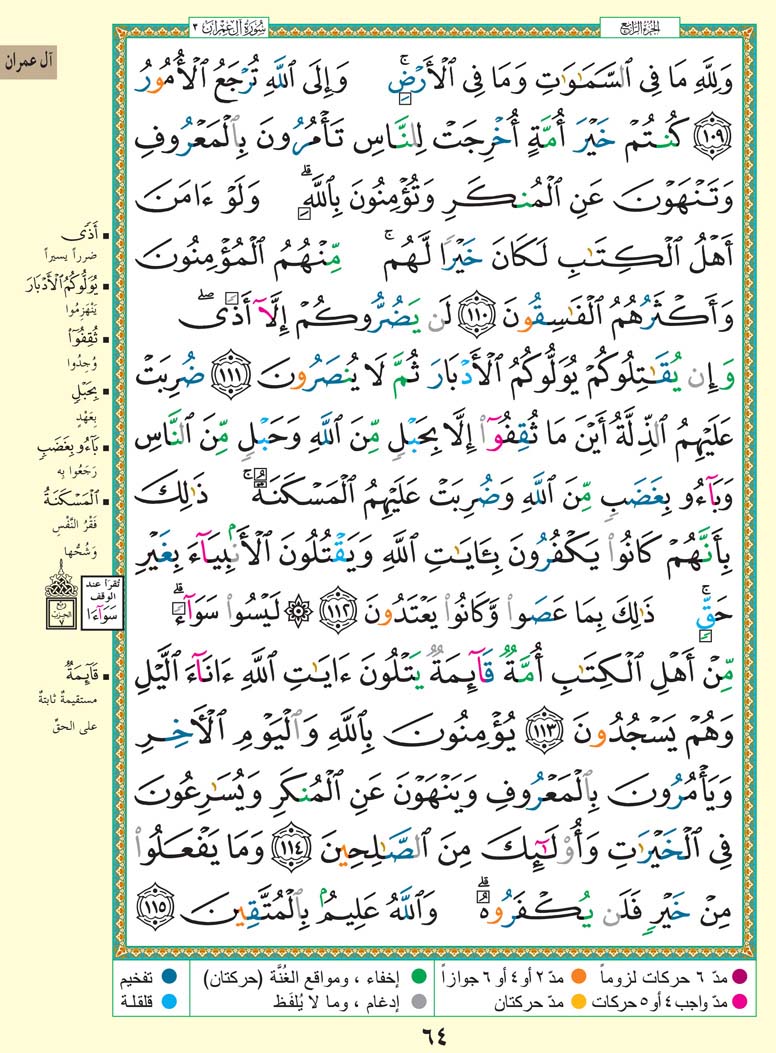 سُورَةُ آلِ عِمْرَان ٣
الجُزْءُ الرَّابِعُ
آل عمران
وَلِلَّهِ مَا فِي ٱلسَّمَٰوَٰتِ وَمَا فِي ٱلْأَرْضِۚ وَإِلَى ٱللَّهِ تُرْجَعُ ٱلْأُمُورُ
١٠٩ كُنتُمْ خَيْرَ أُمَّةٍ أُخْرِجَتْ لِلنَّاسِ تَأْمُرُونَ بِٱلْمَعْرُوفِ
وَتَنْهَوْنَ عَنِ ٱلْمُنكَرِ وَتُؤْمِنُونَ بِٱللَّهِۗ وَلَوْ ءَامَنَ
أَهْلُ ٱلْكِتَٰبِ لَكَانَ خَيْرًا لَّهُمۚ مِّنْهُمُ ٱلْمُؤْمِنُونَ
وَأَكْثَرُهُمُ ٱلْفَٰسِقُونَ ١١٠ لَن يَضُرُّوكُمْ إِلَّآ أَذًىۖ
وَإِن يُقَٰتِلُوكُمْ يُوَلُّوكُمُ ٱلْأَدْبَارَ ثُمَّ لَا يُنصَرُونَ ١١١ ضُرِبَتْ
عَلَيْهِمُ ٱلذِّلَّةُ أَيْنَ مَا ثُقِفُوٓا۟ إِلَّا بِحَبْلٍ مِّنَ ٱللَّهِ وَحَبْلٍ مِّنَ ٱلنَّاسِ
وَبَآءُو بِغَضَبٍ مِّنَ ٱللَّهِ وَضُرِبَتْ عَلَيْهِمُ ٱلْمَسْكَنَةُۚ ذَٰلِكَ
بِأَنَّهُمْ كَانُوا۟ يَكْفُرُونَ بِـَٔايَٰتِ ٱللَّهِ وَيَقْتُلُونَ ٱلْأَنۢبِيَآءَ بِغَيْرِ
حَقٍّۚ ذَٰلِكَ بِمَا عَصَوا۟ وَّكَانُوا۟ يَعْتَدُونَ ١١٢ ۞ لَيْسُوا۟ سَوَآءًۗ
مِّنْ أَهْلِ ٱلْكِتَٰبِ أُمَّةٌ قَآئِمَةٌ يَتْلُونَ ءَايَٰتِ ٱللَّهِ ءَانَآءَ ٱلَّيْلِ
وَهُمْ يَسْجُدُونَ ١١٣ يُؤْمِنُونَ بِٱللَّهِ وَٱلْيَوْمِ ٱلْأَخِرِ
وَيَأْمُرُونَ بِٱلْمَعْرُوفِ وَيَنْهَوْنَ عَنِ ٱلْمُنكَرِ وَيُسَٰرِعُونَ
فِي ٱلْخَيْرَٰتِ وَأُو۟لَٰٓئِكَ مِنَ ٱلصَّٰلِحِينَ ١١٤ وَمَا يَفْعَلُوا۟
مِنْ خَيْرٍ فَلَن يُكْفَرُوهُۗ وَٱللَّهُ عَلِيمٌۢ بِٱلْمُتَّقِينَ ١١٥
أَذًى
ضرراً يسيراً
يُوَلُّوكُمُ ٱلْأَدْبَارَ
يَنْهَزِمُوا
ثُقِفُوٓا۟
وُجِدُوا
بِحَبْلٍ
بِعَهْدٍ
بَآءُو بِغَضَبٍ
رَجَعُوا بِه
ٱلْمَسْكَنَةُ
فَقْرُ النَّفْسِ
وَشُحُّها
تُقرَأ عند
الوقف
سَوَآءَا
ربع
الحزب
٧
قَآئِمَةٌ
مستقيمةٌ ثابتةٌ
على الحقّ
مدّ ٦ حركات لزوماً مدّ ٢ أو ٤ أو ٦ جوازاً إخفاء ، ومواقع الغُنَّة (حركتان) تفخيم
مدّ واجب ٤ أو ٥ حركات مدّ حركتان إدغام ، وما لا يُلفَظ قلقلة
٦٤